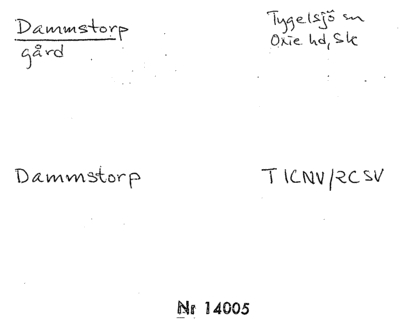 Dammstorp
gård
Tygelsjö sn
Oxie hd, Sk
Dammstorp
T 1CNV/2CSV
Nr 14005